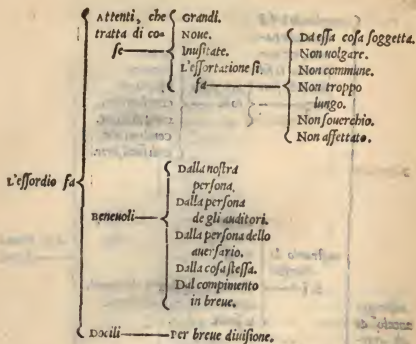 L'essordio fa
Attenti, che
tratta di co
se
Grandi.
Noue.
Inusitate.
L'essortazione si
fa
Da essa cosa soggetta.
Non volgare.
Non commune.
Non troppo
lungo.
Non souerchio.
Non affettato.
Beneuoli
Dalla nostra
persona.
Dalla persona
de gli auditori.
Dalla persona dello
auersario.
Dalla cosa stessa.
Dal compimento
in breue.
Docili
Per breue diuisione.